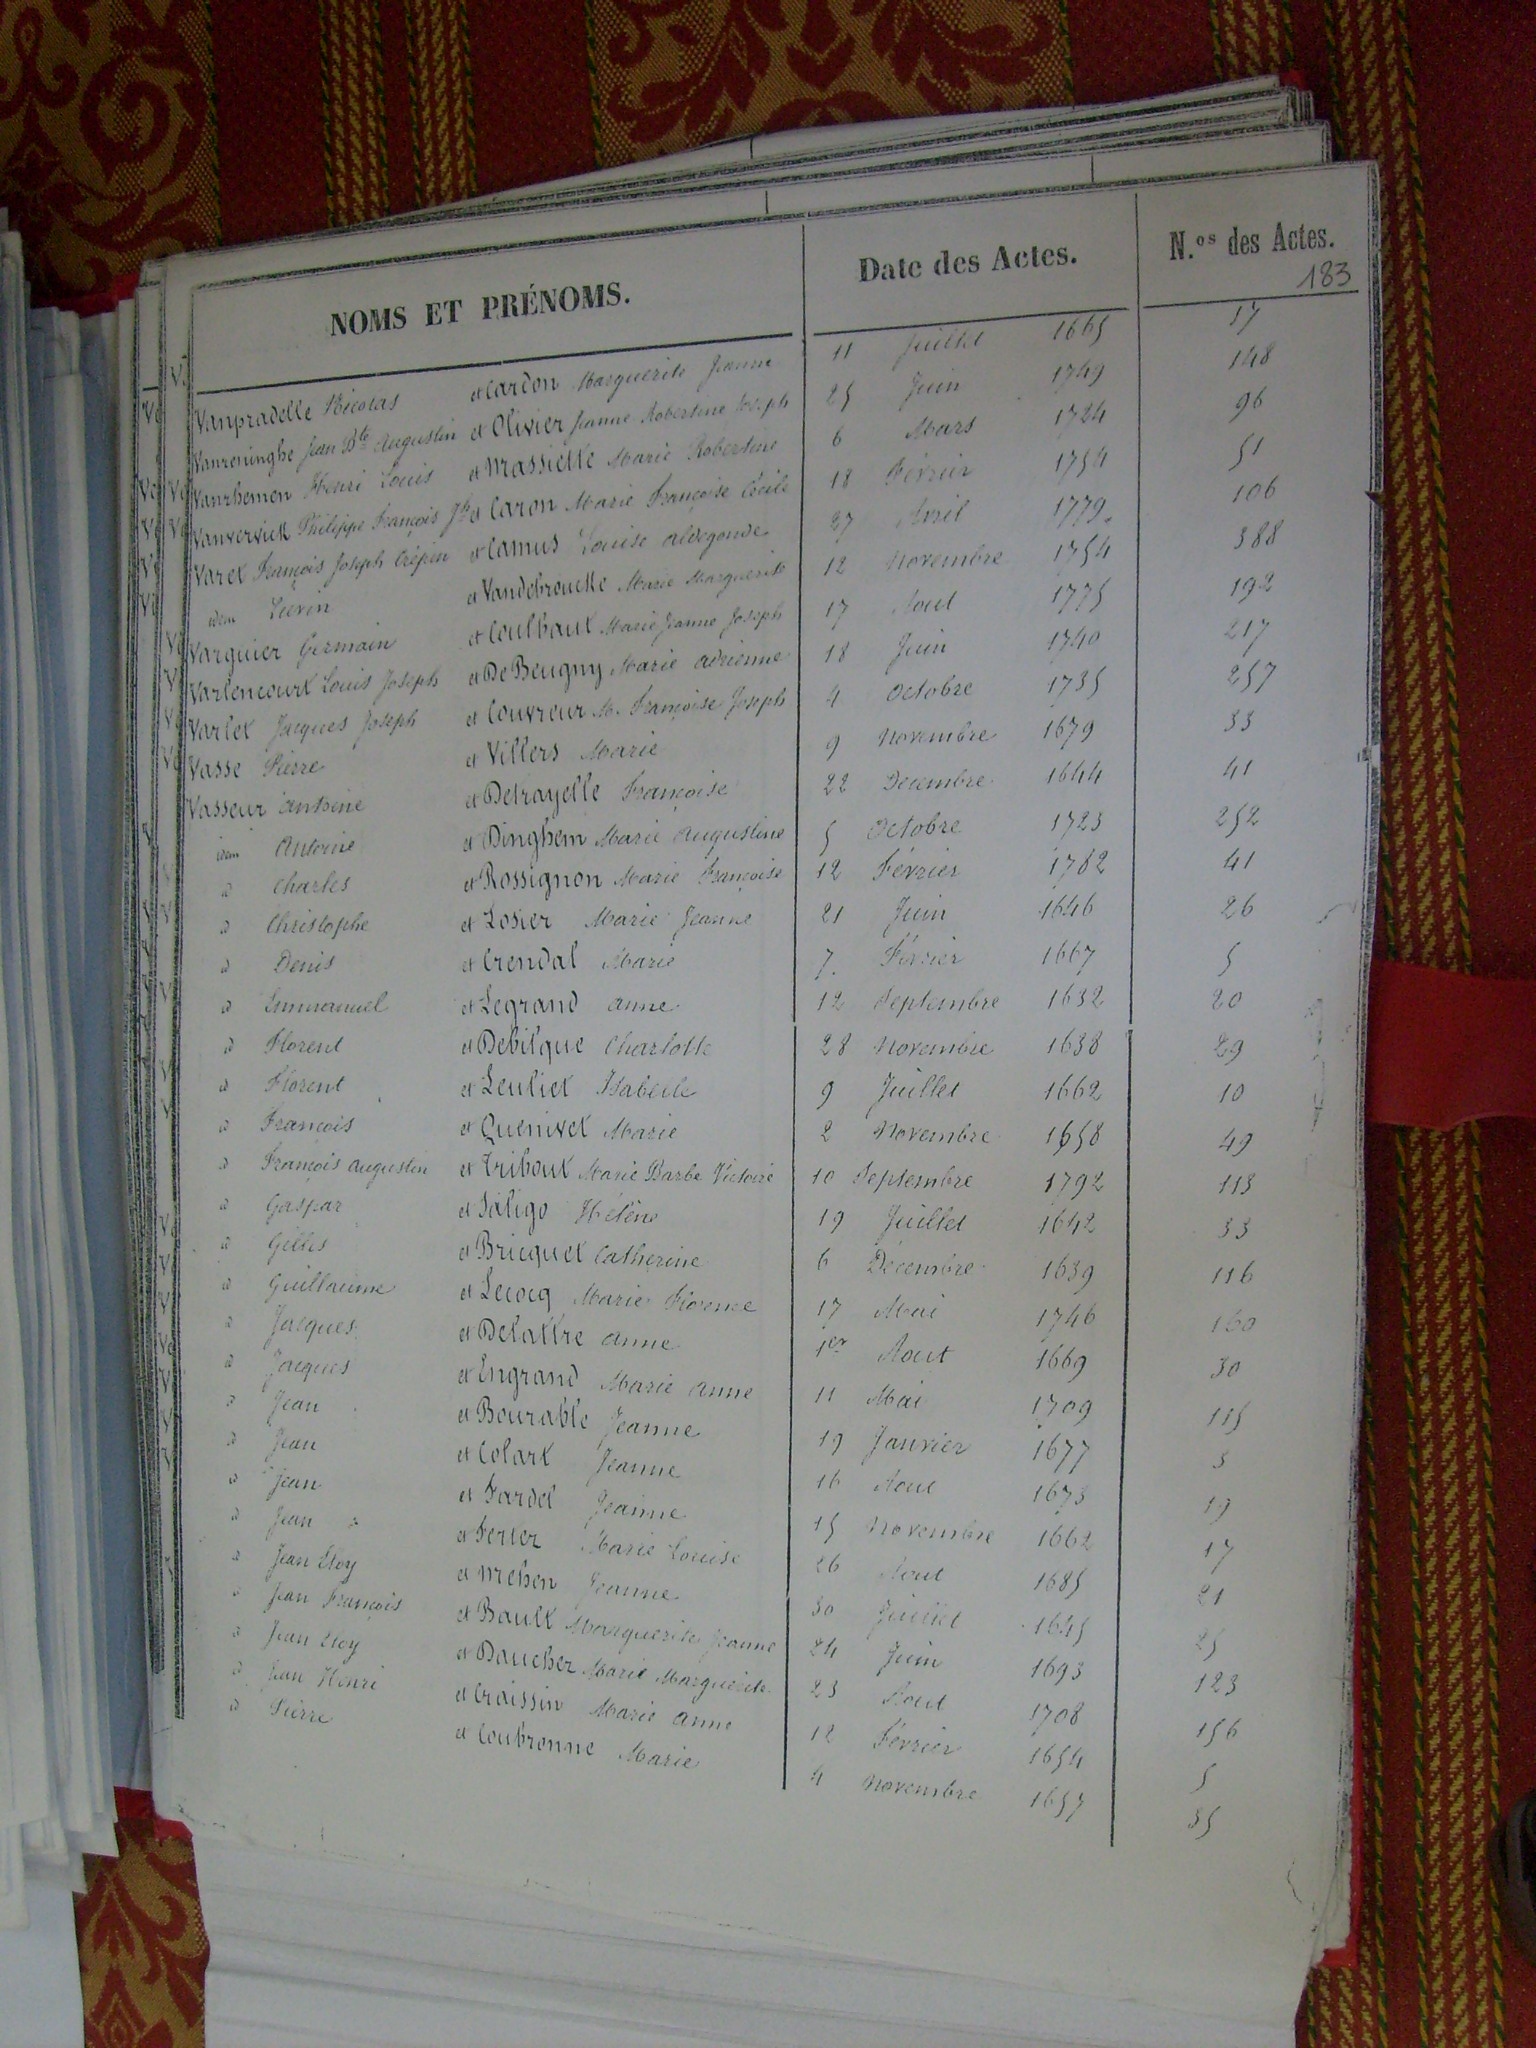 NOMS ET PRÉNOMS. Date des Actes. N.os des Actes.
183
Vanpradelle Nicolas et Cardon Marguerite Jeanne 11 Juillet 1665 17
Vanreninghe Jean Bte Augustin et Olivier Jeanne Robertine Joseph 25 Juin 1749 148
Vanrhemen Henri Louis et Massiette Marie Robertine 6 Mars 1724 96
Vanvervick Philippe François Jh et Caron Marie Françoise Cécile 18 Février 1754 51
Varet François Joseph Crépin et Camus Louise Aldegonde 27 Avril 1779 106
idem Lievin et Vandebroucke Marie Marguerite 12 Novembre 1754 388
Varguier Germain et Coulbaux Marie Jeanne Joseph 17 Aout 1775 192
Varlencourt Louis Joseph et De Beugny Marie Adrienne 18 Juin 1740 217
Varlet Jacques Joseph et Couvreur M. Françoise Joseph 4 Octobre 1735 257
Vasse Pierre et Villers Marie 9 Novembre 1679 33
Vasseur Antoine et Detrayelle Françoise 22 Decembre 1644 41
idem Antoine et Dinghem Marie Augustine 5 Octobre 1723 252
d Charles et Rossignon Marie Françoise 12 Février 1782 41
d Christophe et Losier Marie Jeanne 21 Juin 1646 26
d Denis et Crendal Marie 7. Février 1667 5
d Emmanuel et Legrand Anne 12 Septembre 1632 20
d Florent et Debilque Charlotte 28 Novembre 1638 29
d Florent et Leuliet Isabelle 9 Juillet 1662 10
d François et Quenivet Marie 2 Novembre 1658 49
d François Augustin et Tribout Marie Barbe Victoire 10 Septembre 1792 113
d Gaspar et Saligo Hélène 19 Juillet 1642 33
d Gilles et Bricquet Catherine 6 Décembre 1639 116
d Guillaume et Lecocq Marie Florence 17 Mai 1746 160
d Jacques et Delattre Anne 1er Aout 1669 30
d Jacques et Engrand Marie Anne 11 Mai 1709 115
d Jean et Bourable Jeanne 19 Janvier 1677 3
d Jean et Colart Jeanne 16 Aout 1673 19
d Jean et Tardel Jeanne 15 Novembre 1662 17
d Jean et Ferler Marie Louise 26 Aout 1685 21
d Jean Eloy et Mehen Jeanne 30 Juillet 1645 25
d Jean François et Bault Marguerite Jeanne 24 Juin 1693 123
d Jean Eloy et Daucher Marie Marguerite 23 Aout 1708 156
d Jean Henri et Craissin Marie Anne 12 Février 1654 5
d Pierre et Coubronne Marie 4 Novembre 1657 35